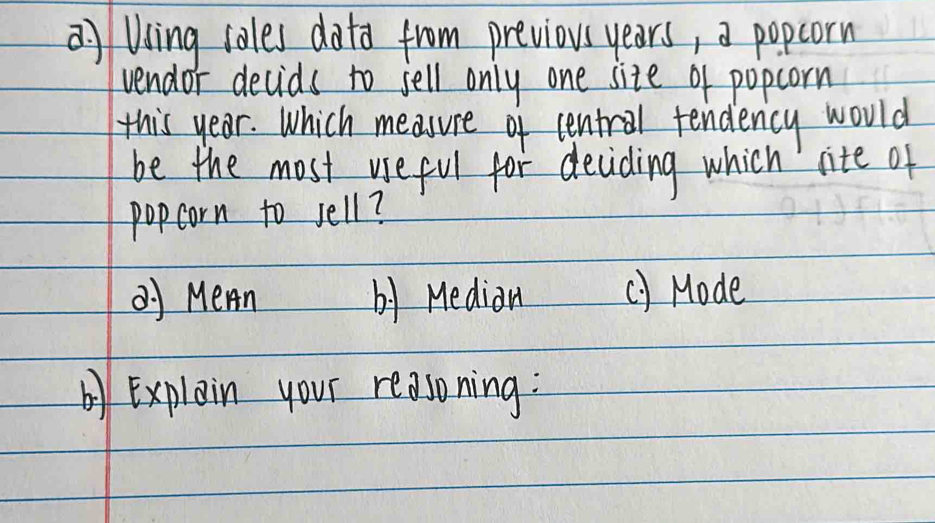 a.) Using sales data from previous years, a popcorn
vendor decids to sell only one size of popcorn
this year. Which measure of central tendency would
be the most useful for deciding which size of
popcorn to sell?
a.) Mean b.) Median c.) Mode
b.) Explain your reasoning: